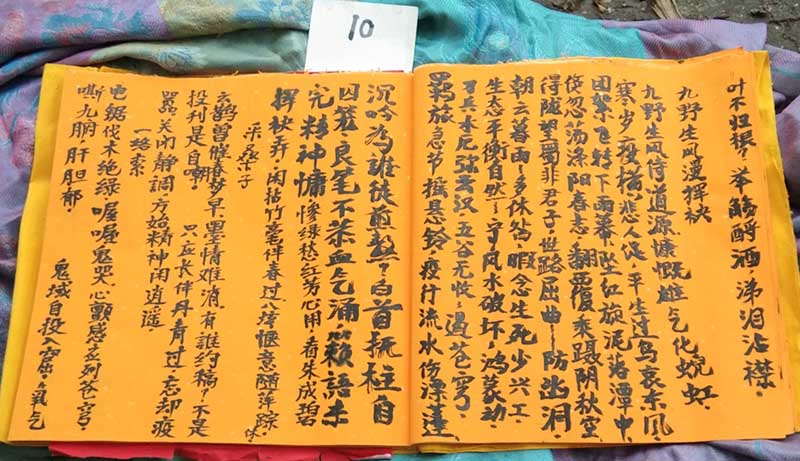 10
叶不归根？举觞酹酒，涕泪沾襟。
九野生风漫挥袂
九野生风侍道源慷慨雄气化蜺虹
寒岁疫横悲人促平生过鸟哀东风
因絮飞转下雨幕坠红旋泥落潭中
倏忽荡涤阳春志翻覆乘蹑阴秋空
得陇望蜀非君子世路屈曲防幽洞
朝云暮雨多休咎暇念生死少兴工
生态平衡自然守风水破坏鸿蒙动
刀兵水厄弥云汉五谷无收遏苍穹
羁旅急节摧悬铃疫行流水伤漂蓬
沉吟为谁徒煎熬？白首抚柱自
囚笼良笔不荼血气涌籁语未
完精神慵惨绿愁红芳心用看朱成碧
挥袂弄闲拈竹毫伴春过恣惬意随萍踪休
采桑子
鹊曾催春梦早墨情难消有谁约稿？不是
投利是自嘲。只应长伴丹青过忘却疫
嚣关闭静调方始精神闲逍遥。
一络索
电锯伐木绝绿。喔喔鬼哭。心颤感刻苍穹，
嘶九腑肝胆郁。鬼域自投入窟氧气